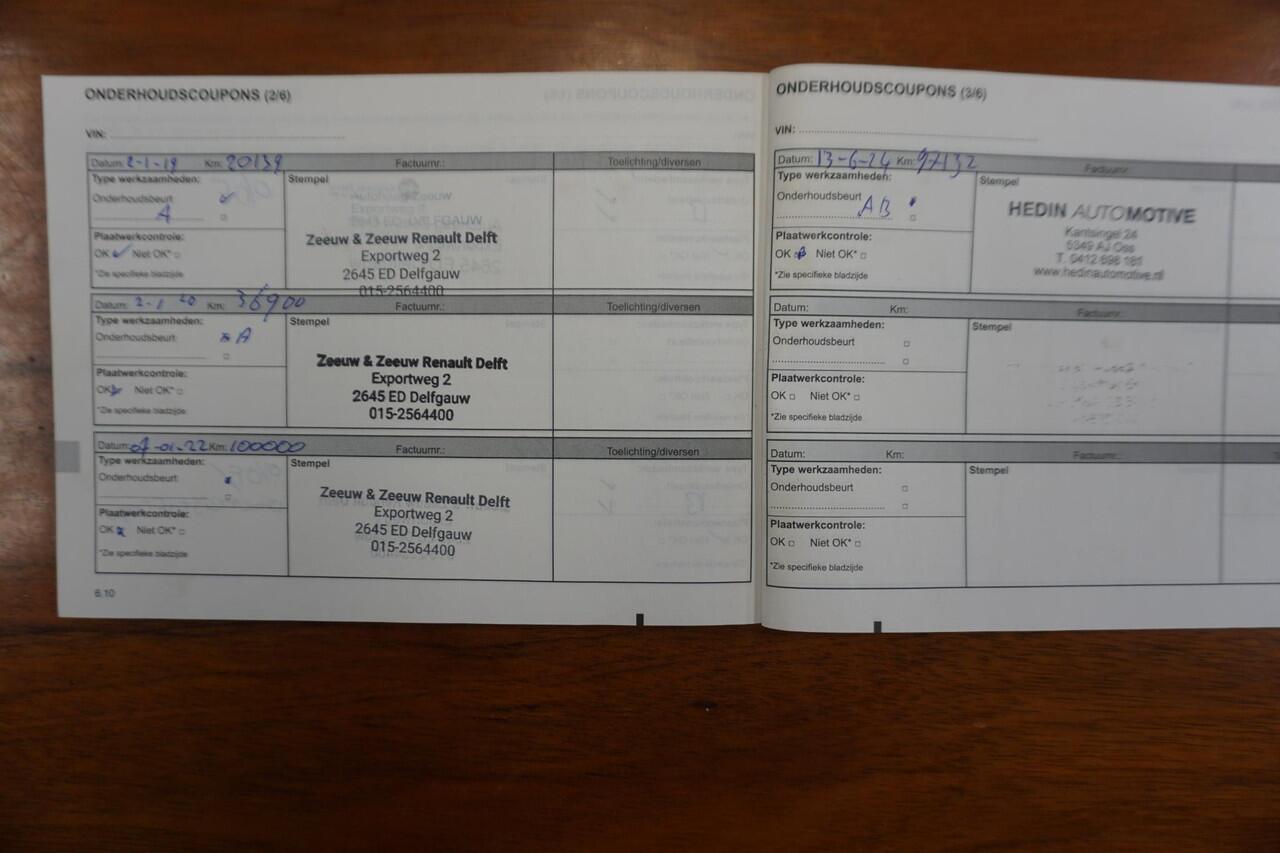 ONDERHOUDSCOUPONS (2/6)
VIN:
Datum: 2-1-19 Km: 20139 Factuurnr.: Toelichting/diversen
Type werkzaamheden: Stempel
Onderhoudsbeurt
A
Autohuis Zeeuw
Exportweg 2
2645 ED DELFGAUW
Zeeuw & Zeeuw Renault Delft
Exportweg 2
2645 ED Delfgauw
015-2564400
Plaatwerkcontrole:
OK Niet OK*
*Zie specifieke bladzijde
Datum: 2-1 20 Km: 36900 Factuurnr.: Toelichting/diversen
Type werkzaamheden: Stempel
Onderhoudsbeurt A
Zeeuw & Zeeuw Renault Delft
Exportweg 2
2645 ED Delfgauw
015-2564400
Plaatwerkcontrole:
OK Niet OK*
*Zie specifieke bladzijde
Datum: 07-01-22 Km: 100000 Factuurnr.: Toelichting/diversen
Type werkzaamheden: Stempel
Onderhoudsbeurt
Zeeuw & Zeeuw Renault Delft
Exportweg 2
2645 ED Delfgauw
015-2564400
Plaatwerkcontrole:
OK Niet OK*
*Zie specifieke bladzijde
6.10
ONDERHOUDSCOUPONS (3/6)
VIN:
Datum: 13-6-24 Km: 97132 Factuurnr.:
Type werkzaamheden: Stempel
Onderhoudsbeurt
AB
HEDIN AUTOMOTIVE
Kantsingel 24
5349 AJ Oss
T. 0412 698 181
www.hedinautomotive.nl
Plaatwerkcontrole:
OK Niet OK*
*Zie specifieke bladzijde
Datum: Km: Factuurnr.:
Type werkzaamheden: Stempel
Onderhoudsbeurt
Plaatwerkcontrole:
OK Niet OK*
*Zie specifieke bladzijde
Datum: Km: Factuurnr.:
Type werkzaamheden: Stempel
Onderhoudsbeurt
Plaatwerkcontrole:
OK Niet OK*
*Zie specifieke bladzijde